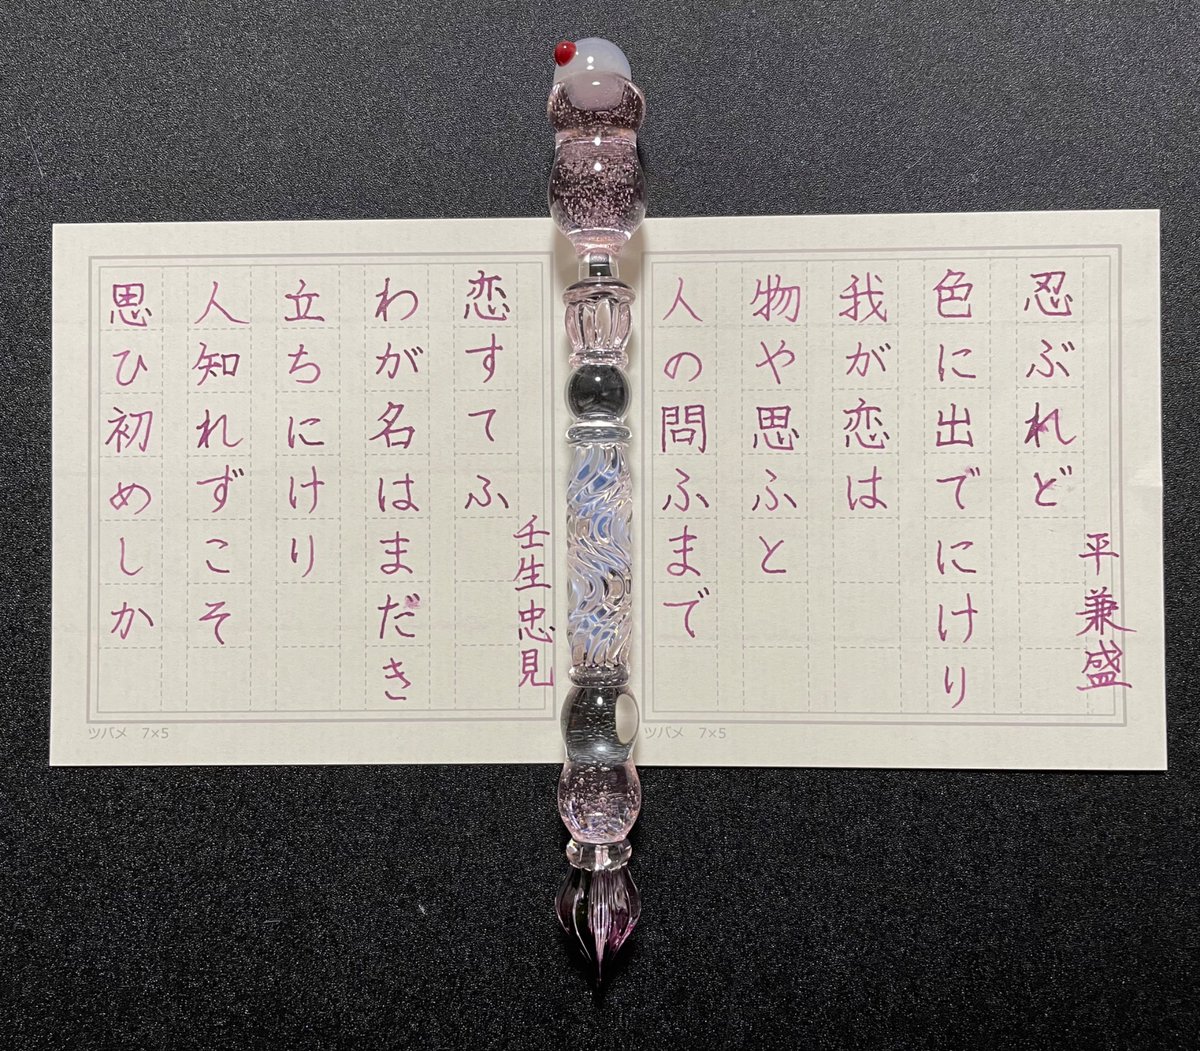 忍ぶれど
色に出でにけり
我が恋は
物や思ふと
人の問ふまで
平兼盛
ツバメ 7×5
恋すてふ
わが名はまだき
立ちにけり
人知れずこそ
思ひ初めしか
壬生忠見
ツバメ 7×5